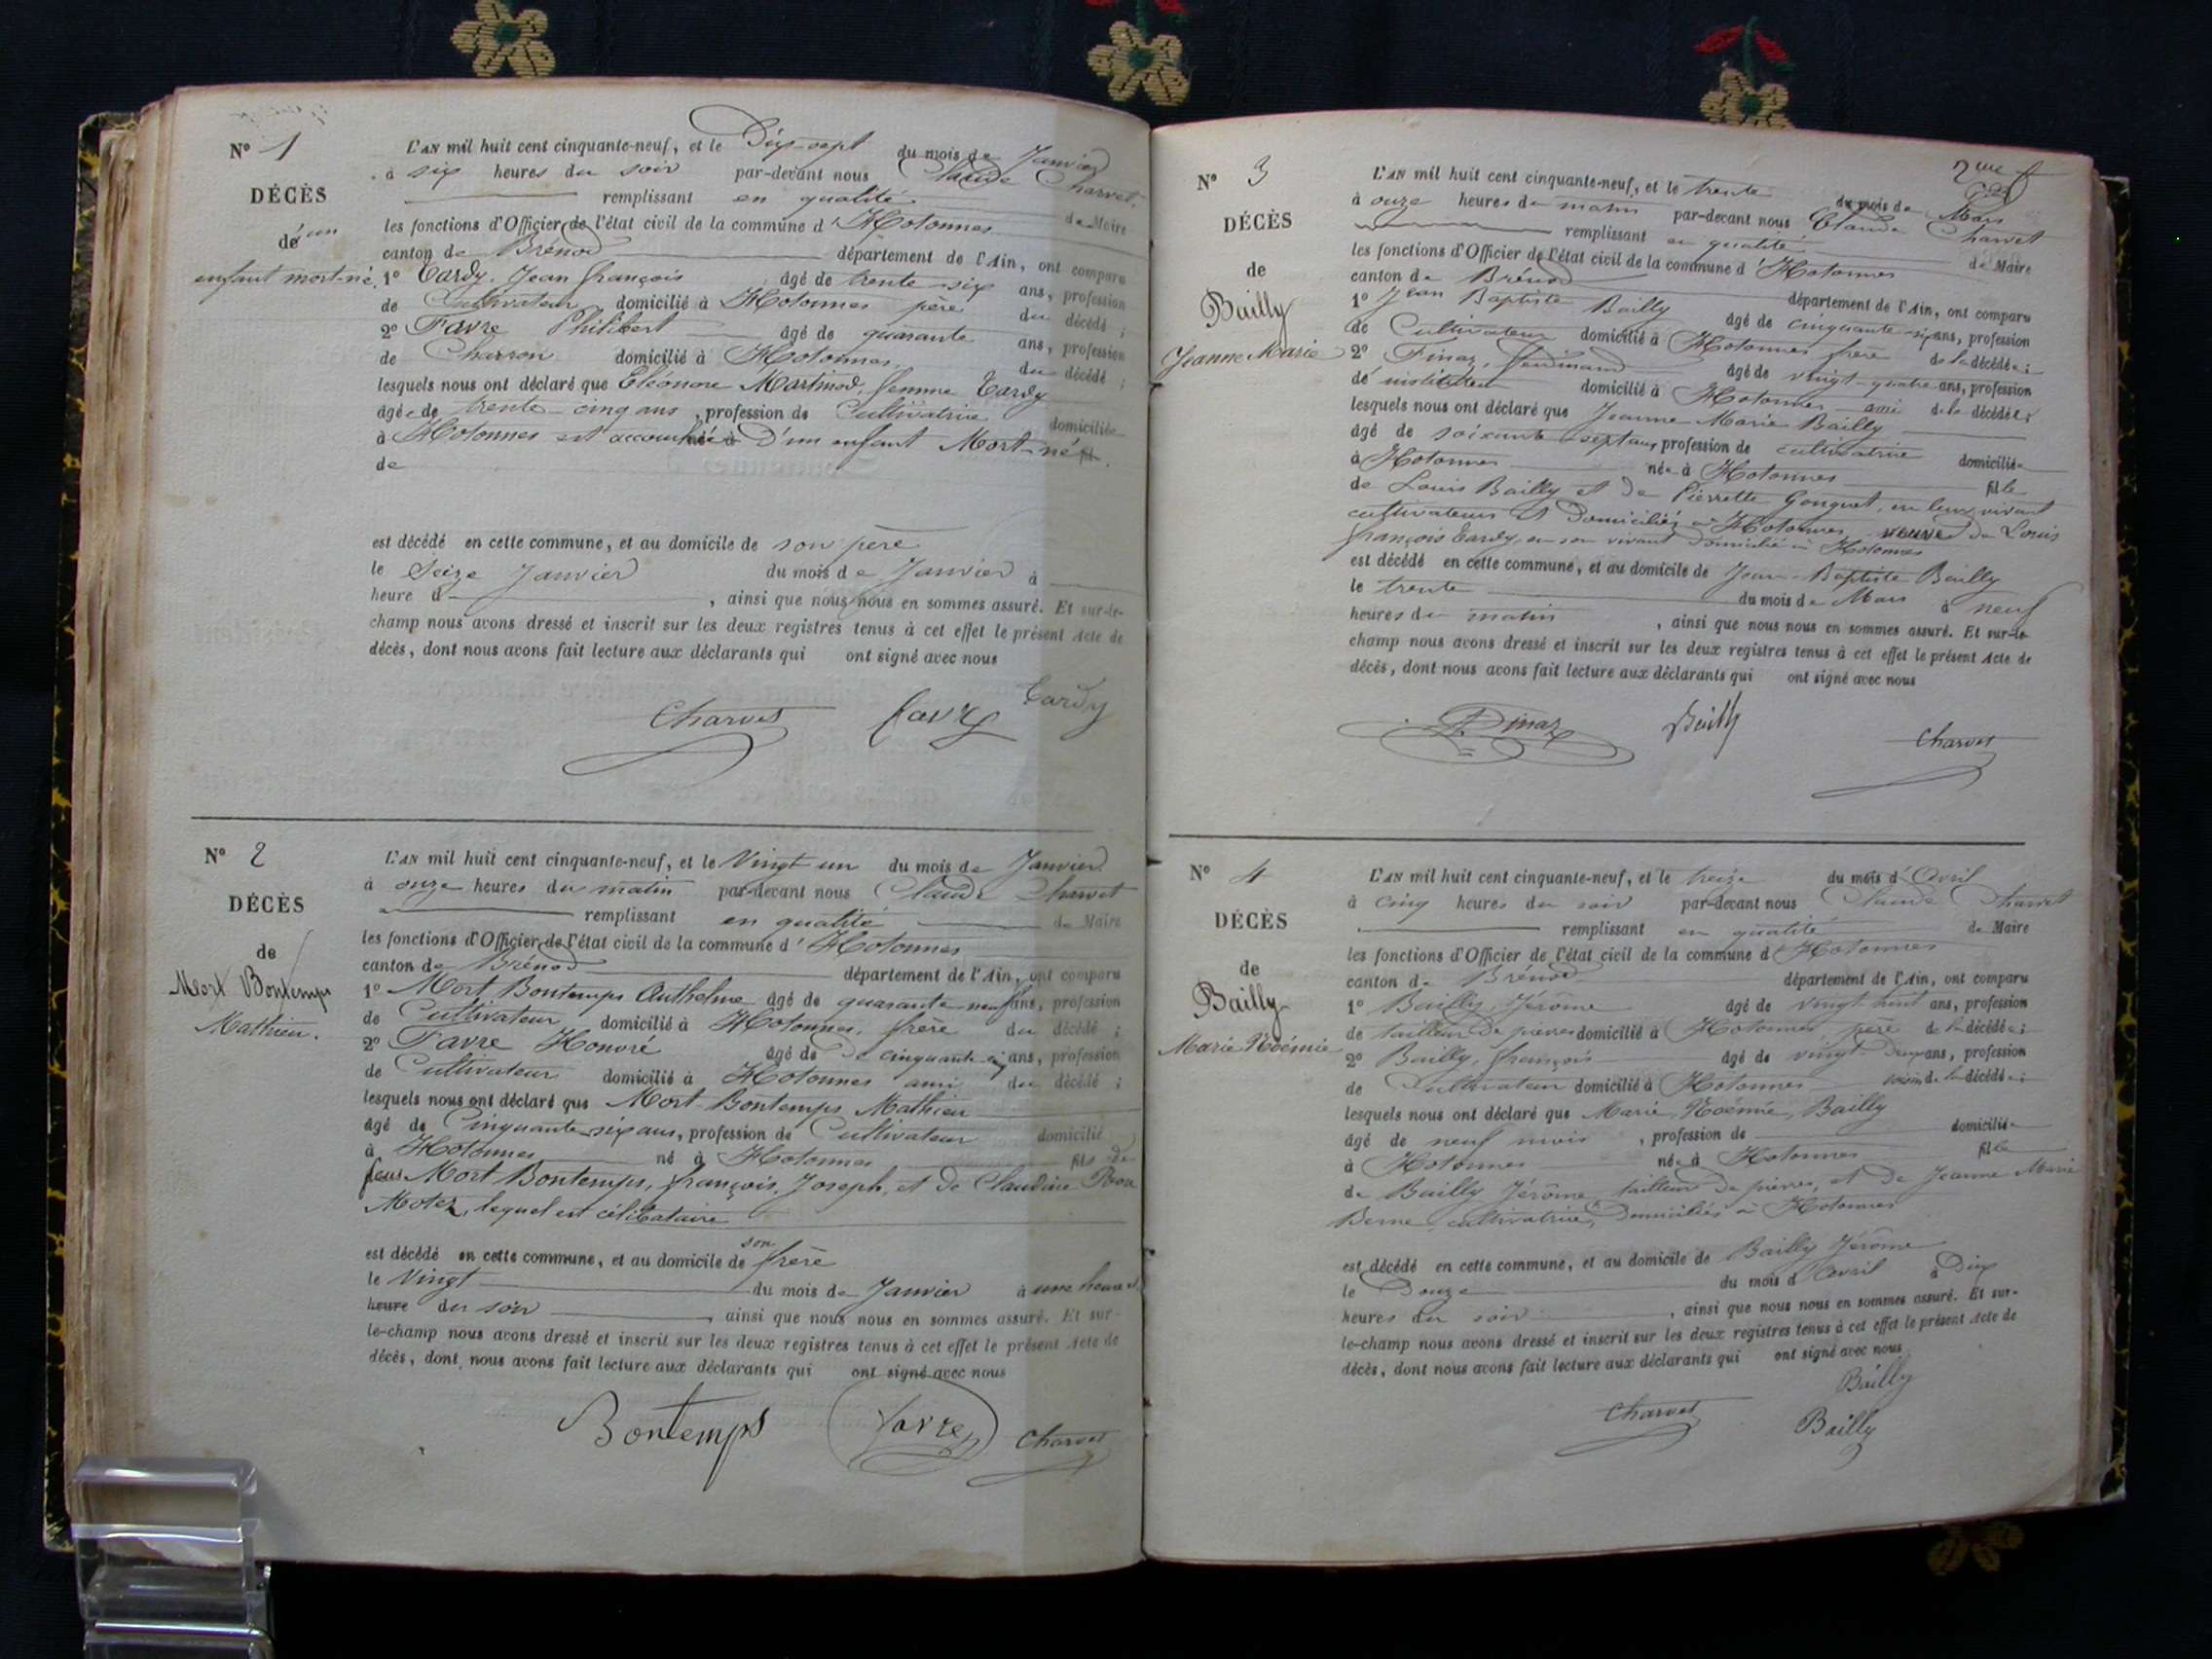 N° 1
DÉCÈS
d'un
enfant mort-né.
L'AN mil huit cent cinquante-neuf, et le Dix-sept du mois de Janvier
à six heures du soir par-devant nous Claude Charvet,
remplissant en qualité de Maire
les fonctions d'Officier de l'état civil de la commune d'Hotonnes
canton de Brénod département de l'Ain, ont comparu
1° Tardy, Jean François âgé de trente-six ans, profession
de Cultivateur domicilié à Hotonnes père du décédé ;
2° Favre Philibert âgé de quarante ans, profession
de Charron domicilié à Hotonnes, du décédé ;
lesquels nous ont déclaré que Eléonore Martinod, femme Tardy
âgée de trente-cinq ans, profession de Cultivatrice domiciliée
à Hotonnes est accouchée d'un enfant Mort-né fil
de
est décédé en cette commune, et au domicile de son père
le Seize Janvier du mois de Janvier à
heure d , ainsi que nous nous en sommes assuré. Et sur-le-
champ nous avons dressé et inscrit sur les deux registres tenus à cet effet le présent Acte de
décès, dont nous avons fait lecture aux déclarants qui ont signé avec nous
Charvet Favre Tardy
N° 2
DÉCÈS
de
Mort Bontemps
Mathieu.
L'AN mil huit cent cinquante-neuf, et le Vingt un du mois de Janvier
à onze heures du matin par-devant nous Claude Charvet
remplissant en qualité de Maire
les fonctions d'Officier de l'état civil de la commune d'Hotonnes
canton de Brénod département de l'Ain, ont comparu
1° Mort Bontemps Anthelme âgé de quarante-neuf ans, profession
de Cultivateur domicilié à Hotonnes, frère du décédé ;
2° Favre Honoré âgé de de cinquante ans, profession
de Cultivateur domicilié à Hotonnes ami du décédé ;
lesquels nous ont déclaré que Mort-Bontemps Mathieu
âgé de Cinquante-six ans, profession de Cultivateur domicilié
à Hotonnes né à Hotonnes fils de
feus Mort Bontemps, François, Joseph, et de Claudine
lequel est célibataire
est décédé en cette commune, et au domicile de son frère
le Vingt du mois de Janvier à une heure
heure du soir , ainsi que nous nous en sommes assuré. Et sur-
le-champ nous avons dressé et inscrit sur les deux registres tenus à cet effet le présent Acte de
décès, dont nous avons fait lecture aux déclarants qui ont signé avec nous
Bontemps Favre Charvet
2me f
N° 3
DÉCÈS
de
Bailly
Jeanne Marie
L'AN mil huit cent cinquante-neuf, et le trente du mois de Mars
à onze heures du matin par-devant nous Claude Charvet
remplissant en qualité de Maire
les fonctions d'Officier de l'état civil de la commune d'Hotonnes
canton de Brénod département de l'Ain, ont comparu
1° Jean Baptiste Bailly âgé de cinquante-six ans, profession
de Cultivateur domicilié à Hotonnes frère de la décédée ;
2° Finaz, Ferdinand âgé de vingt-quatre ans, profession
d'instituteur domicilié à Hotonnes ami de la décédée ;
lesquels nous ont déclaré que Jeanne Marie Bailly
âgé de soixante sept ans, profession de cultivatrice domiciliée
à Hotonnes née à Hotonnes fille
de Louis Bailly et de Pierrette Gouguet, en leur vivant
cultivateurs et domiciliés à Hotonnes, veuve de Louis
François Tardy, en son vivant domicilié à Hotonnes
est décédé en cette commune, et au domicile de Jean-Baptiste Bailly
le trente du mois de Mars à neuf
heures du matin , ainsi que nous nous en sommes assuré. Et sur-le-
champ nous avons dressé et inscrit sur les deux registres tenus à cet effet le présent Acte de
décès, dont nous avons fait lecture aux déclarants qui ont signé avec nous
F. Finaz Bailly Charvet
N° 4
DÉCÈS
de
Bailly
Marie Noémie
L'AN mil huit cent cinquante-neuf, et le treize du mois d'Avril
à cinq heures du soir par-devant nous Claude Charvet
remplissant en qualité de Maire
les fonctions d'Officier de l'état civil de la commune d'Hotonnes
canton de Brénod département de l'Ain, ont comparu
1° Bailly, Jérôme âgé de vingt-huit ans, profession
de tailleur de pierres domicilié à Hotonnes père de la décédée ;
2° Bailly, François âgé de vingt-deux ans, profession
de Cultivateur domicilié à Hotonnes voisin de la décédée ;
lesquels nous ont déclaré que Marie, Noémie, Bailly
âgé de neuf mois , profession de domiciliée
à Hotonnes née à Hotonnes fille
de Bailly Jérôme, tailleur de pierres, et de Jeanne Marie
Berne, cultivatrice, domiciliés à Hotonnes
est décédé en cette commune, et au domicile de Bailly Jérôme
le Douze du mois d'Avril à Dix
heures du soir , ainsi que nous nous en sommes assuré. Et sur-
le-champ nous avons dressé et inscrit sur les deux registres tenus à cet effet le présent Acte de
décès, dont nous avons fait lecture aux déclarants qui ont signé avec nous
Bailly
Charvet Bailly